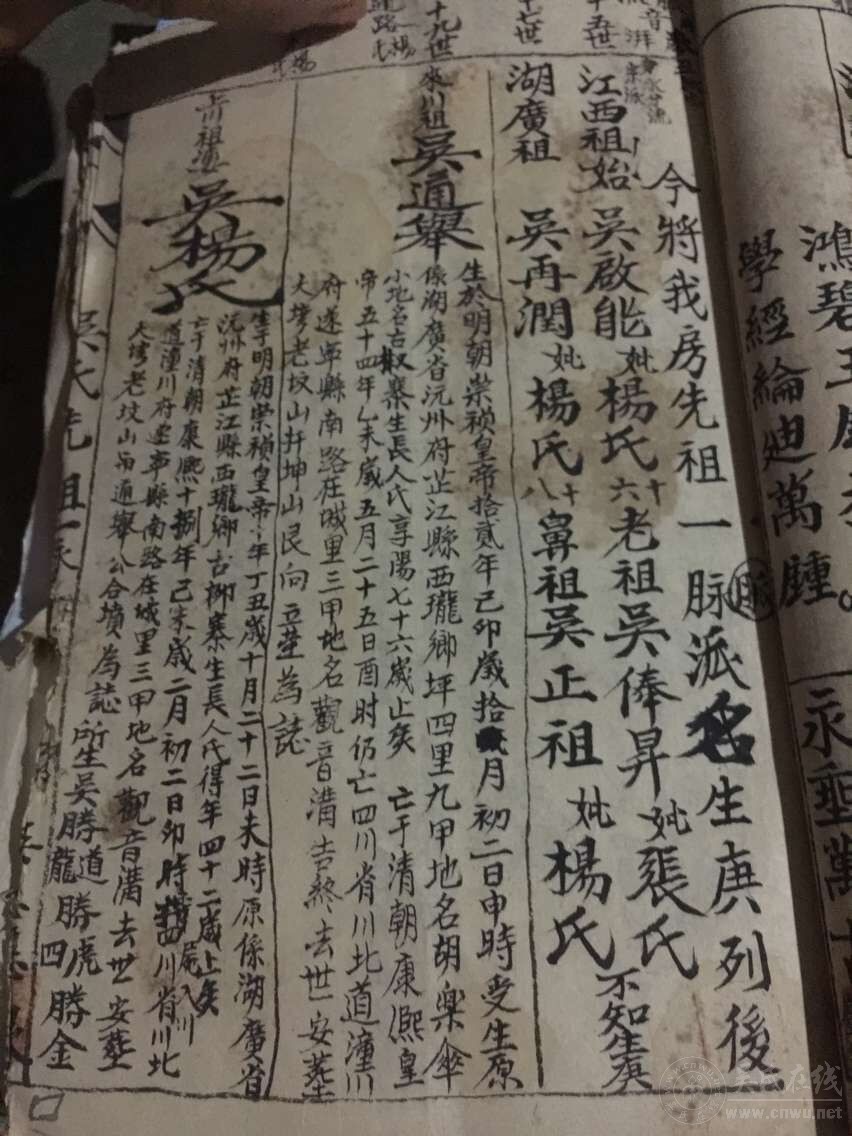 鴻碧玉
學經綸迪萬腫
脈
永垂萬古
今將我房先祖一脉派名生庚列後
江西祖始 吳啟能 妣楊氏十六 老祖吳俸昇 妣張氏 不知生庚
湖廣祖 吳再潤 妣楊氏十八 鼻祖吳正祖 妣楊氏
來川祖 吳通舉
生於明朝崇禎皇帝拾貳年己卯歲拾月初二日申時受生原
係湖廣省沅州府芷江縣西瓏鄉坪四里九甲地名胡樂傘
小地名古寨生長人氏享陽七十六歲止矣 亡于清朝康熙皇
帝五十四年乙未歲五月二十五日酉时仍亡四川省川北道潼川
府遂寧縣南路在城里三甲地名觀音溝告終去世安葬
大塆老坟山扦坤山艮向立塋為誌
吳楊氏
生于明朝崇禎皇帝年丁丑歲十月二十二日未時原係湖廣省
沅州府芷江縣西瓏鄉古柳寨生長人氏得年四十二歲止矣
亡于清朝康熙十捌年己未歲二月初二日卯時四川省川北
道潼川府遂寧縣南路在城里三甲地名觀音溝去世安葬
大塆老坟山與通舉公合墳為誌 所生吳勝道 勝虎 勝龍 勝金 四
吳氏先祖一
十五世
十七世
十九世
吳氏在线
www.cnwu.net